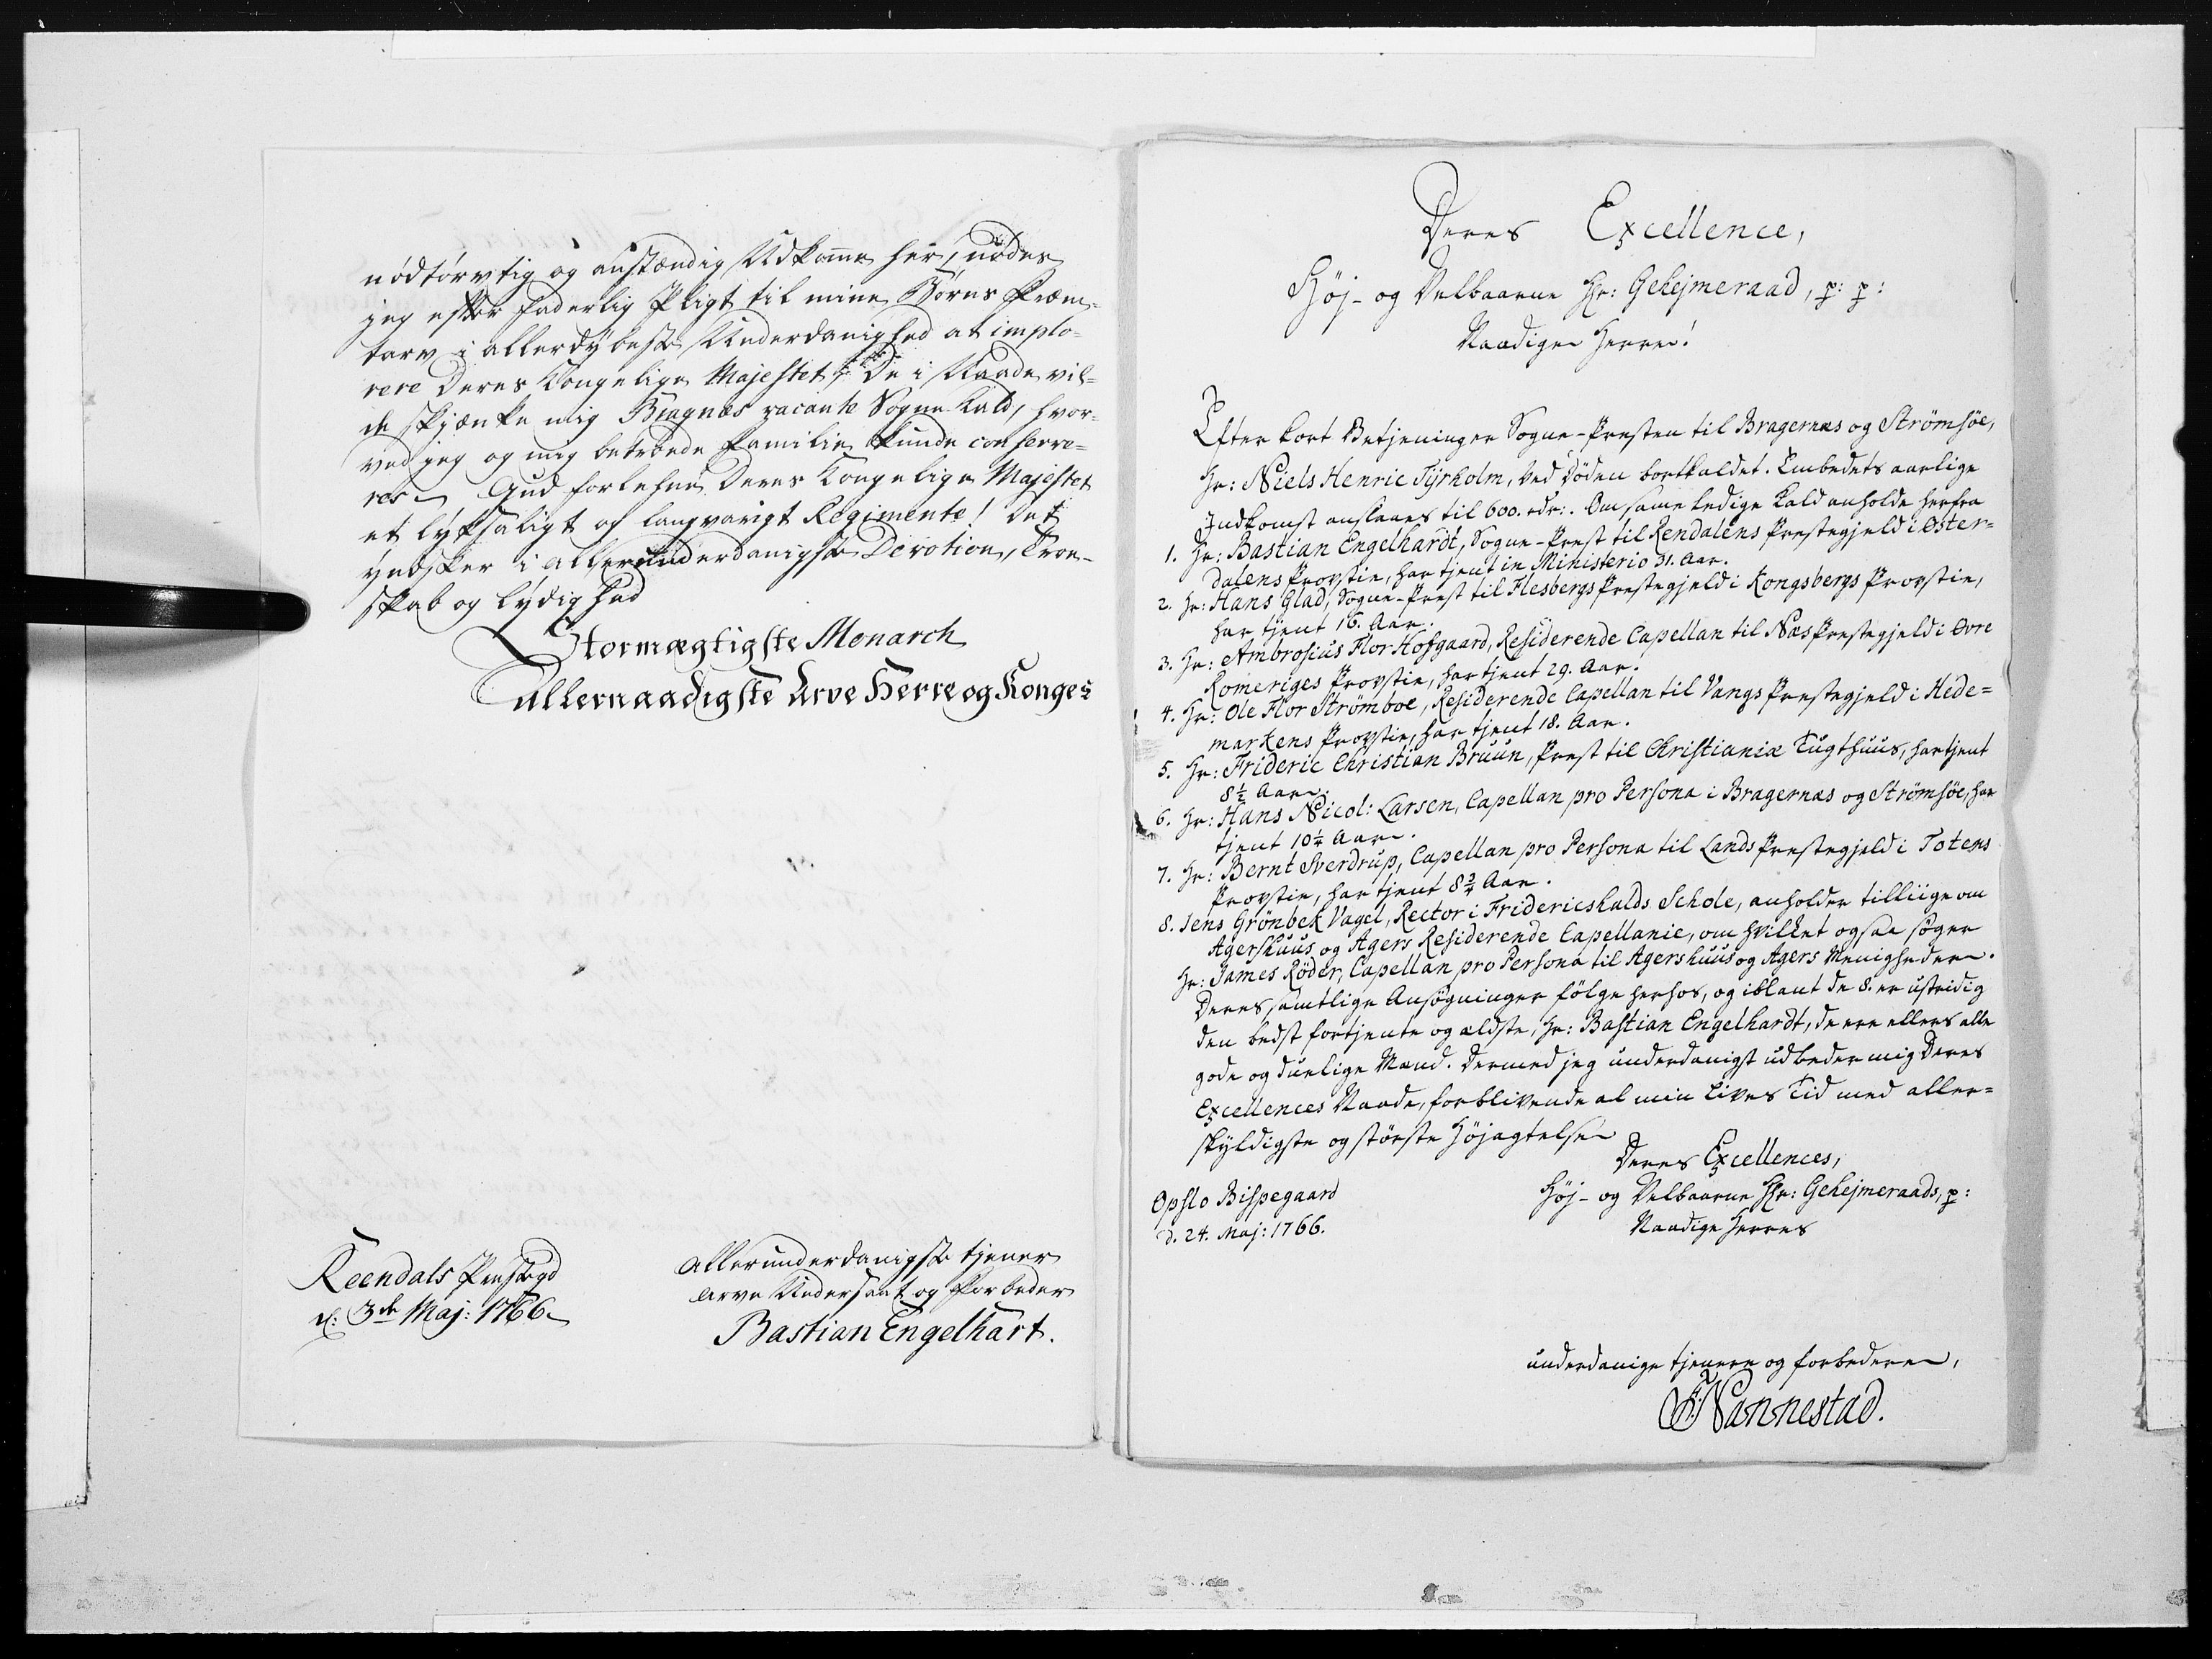 nødtørvtig og anstændig Udkomme her, nødes
jeg efter faderlig Pligt til mine Børns Fræm-
tarv i allerdybeste Underdanighed at implo-
rere Deres Kongelige Majestet, De i Naade vil-
de skjænke mig Bragnæs vacante Sogne Kald, hvor-
ved jeg og mig betroede Familie kunde conserve-
res. Gud forlehne Deres Kongelige Majestet
et lyksaligt og langvarigt Regimente! Det
yndsker i allerunderdanigste Devotion, Troe-
skab og lydighed
Stormægtigste Monarch
Allernaadigste Arve Herre og Konges
Reendals Præstegd
d: 3de Maj: 1766
allerunderdanigste tjener
Arve Undersaat og Forbeder
Bastian Engelhart.
Deres Excellence,
Høj- og Velbaarne Hr: Gehejmeraad, p: p:
Naadige Herre!
Efter kort Betjeninger Sogne-Præsten til Bragernæs og Strömsöe,
Hr: Niels Henric Tyrholm, ved Døden bortkaldet. Embedets aarlige
Indkomst anslaaes til 600. rdr:. Om samme ledige Kald anholde herfra
1. Hr: Bastian Engelhardt, Sogne-Præst til Rendalens Præstegjeld i Öster=
dalens Provstie, har tjent in Ministerio 31. Aar.
2. Hr: Hans Glad, Sogne-Præst til Flesbergs Præstegjeld i Kongsbergs Provstie,
har tjent 16. Aar.
3. Hr: Ambrosius Flor Hofgaard, Residerende Capellan til Næs Præstegjeld i Övre
Romeriges Provstie, har tjent 29. Aar.
4. Hr: Ole Flor Strömboe, Residerende Capellan til Vangs Præstegjeld i Hede=
markens Provstie, har tjent 18. Aar.
5. Hr: Frideric Christian Bruun, Præst til Christianiæ Tugthuus, har tjent
8½ Aar.
6. Hr: Hans Nicol: Larsen, Capellan pro Persona i Bragernæs og Strömsöe, har
tjent 10¼ Aar.
7. Hr: Bernt Sverdrup, Capellan pro Persona til Lands Præstegjeld i Totens
Provstie, har tjent 8¾ Aar.
8. Jens Grönbek Vagel, Rector i Fridericshalds Schole, anholder tilliige om
Agershuus og Agers Residerende Capellanie, om hvilket ogsaa søger
Hr: James Röder, Capellan pro Persona til Agershuus og Agers Menigheder.
Deres samtlige Ansøgninger følge herhos, og iblant de 8. er ustridig
den bedst fortjente og ældste, Hr: Bastian Engelhardt, de ere ellers alle
gode og duelige Mænd. Dermed jeg underdanigst udbeder mig Deres
Excellences Naade, forblivende al min Livs Tid med aller=
skyldigste og største Højagtelse
Deres Excellences,
Høj- og Velbaarne Hr: Gehejmeraads, p:
Naadige Herres
Opslo Bispegaard
d. 24. Maj: 1766.
underdanige tjenere og forbedere,
F: Nannestad.